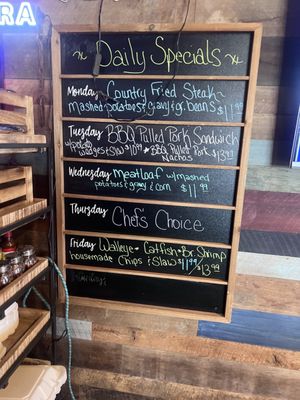 RA
Daily Specials
Monday Country Fried Steak
mashed potatoes & gravy & gr. beans $11.99
Tuesday BBQ Pulled Pork Sandwich
w/potato wedges & slaw $10.99 * BBQ Pulled Pork $13.99
Nachos
Wednesday Meatloaf w/mashed
potatoes & gravy & corn $11.99
Thursday Chef's Choice
Friday Walleye • Catfish • Br. Shrimp
housemade chips & slaw $11.99/$13.99